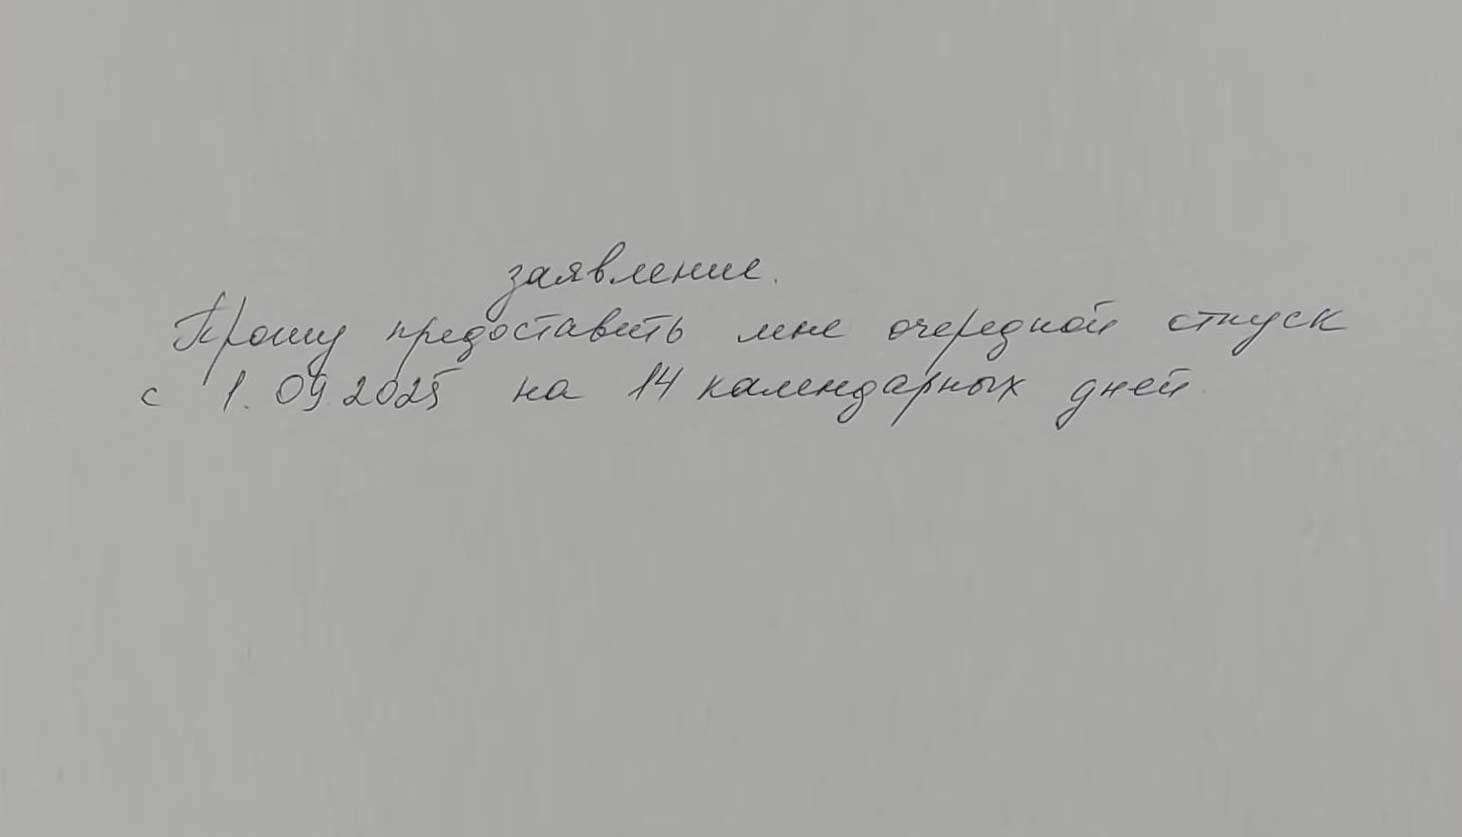 заявление.
Прошу предоставить мне очередной отпуск
с 1.09.2025 на 14 календарных дней.